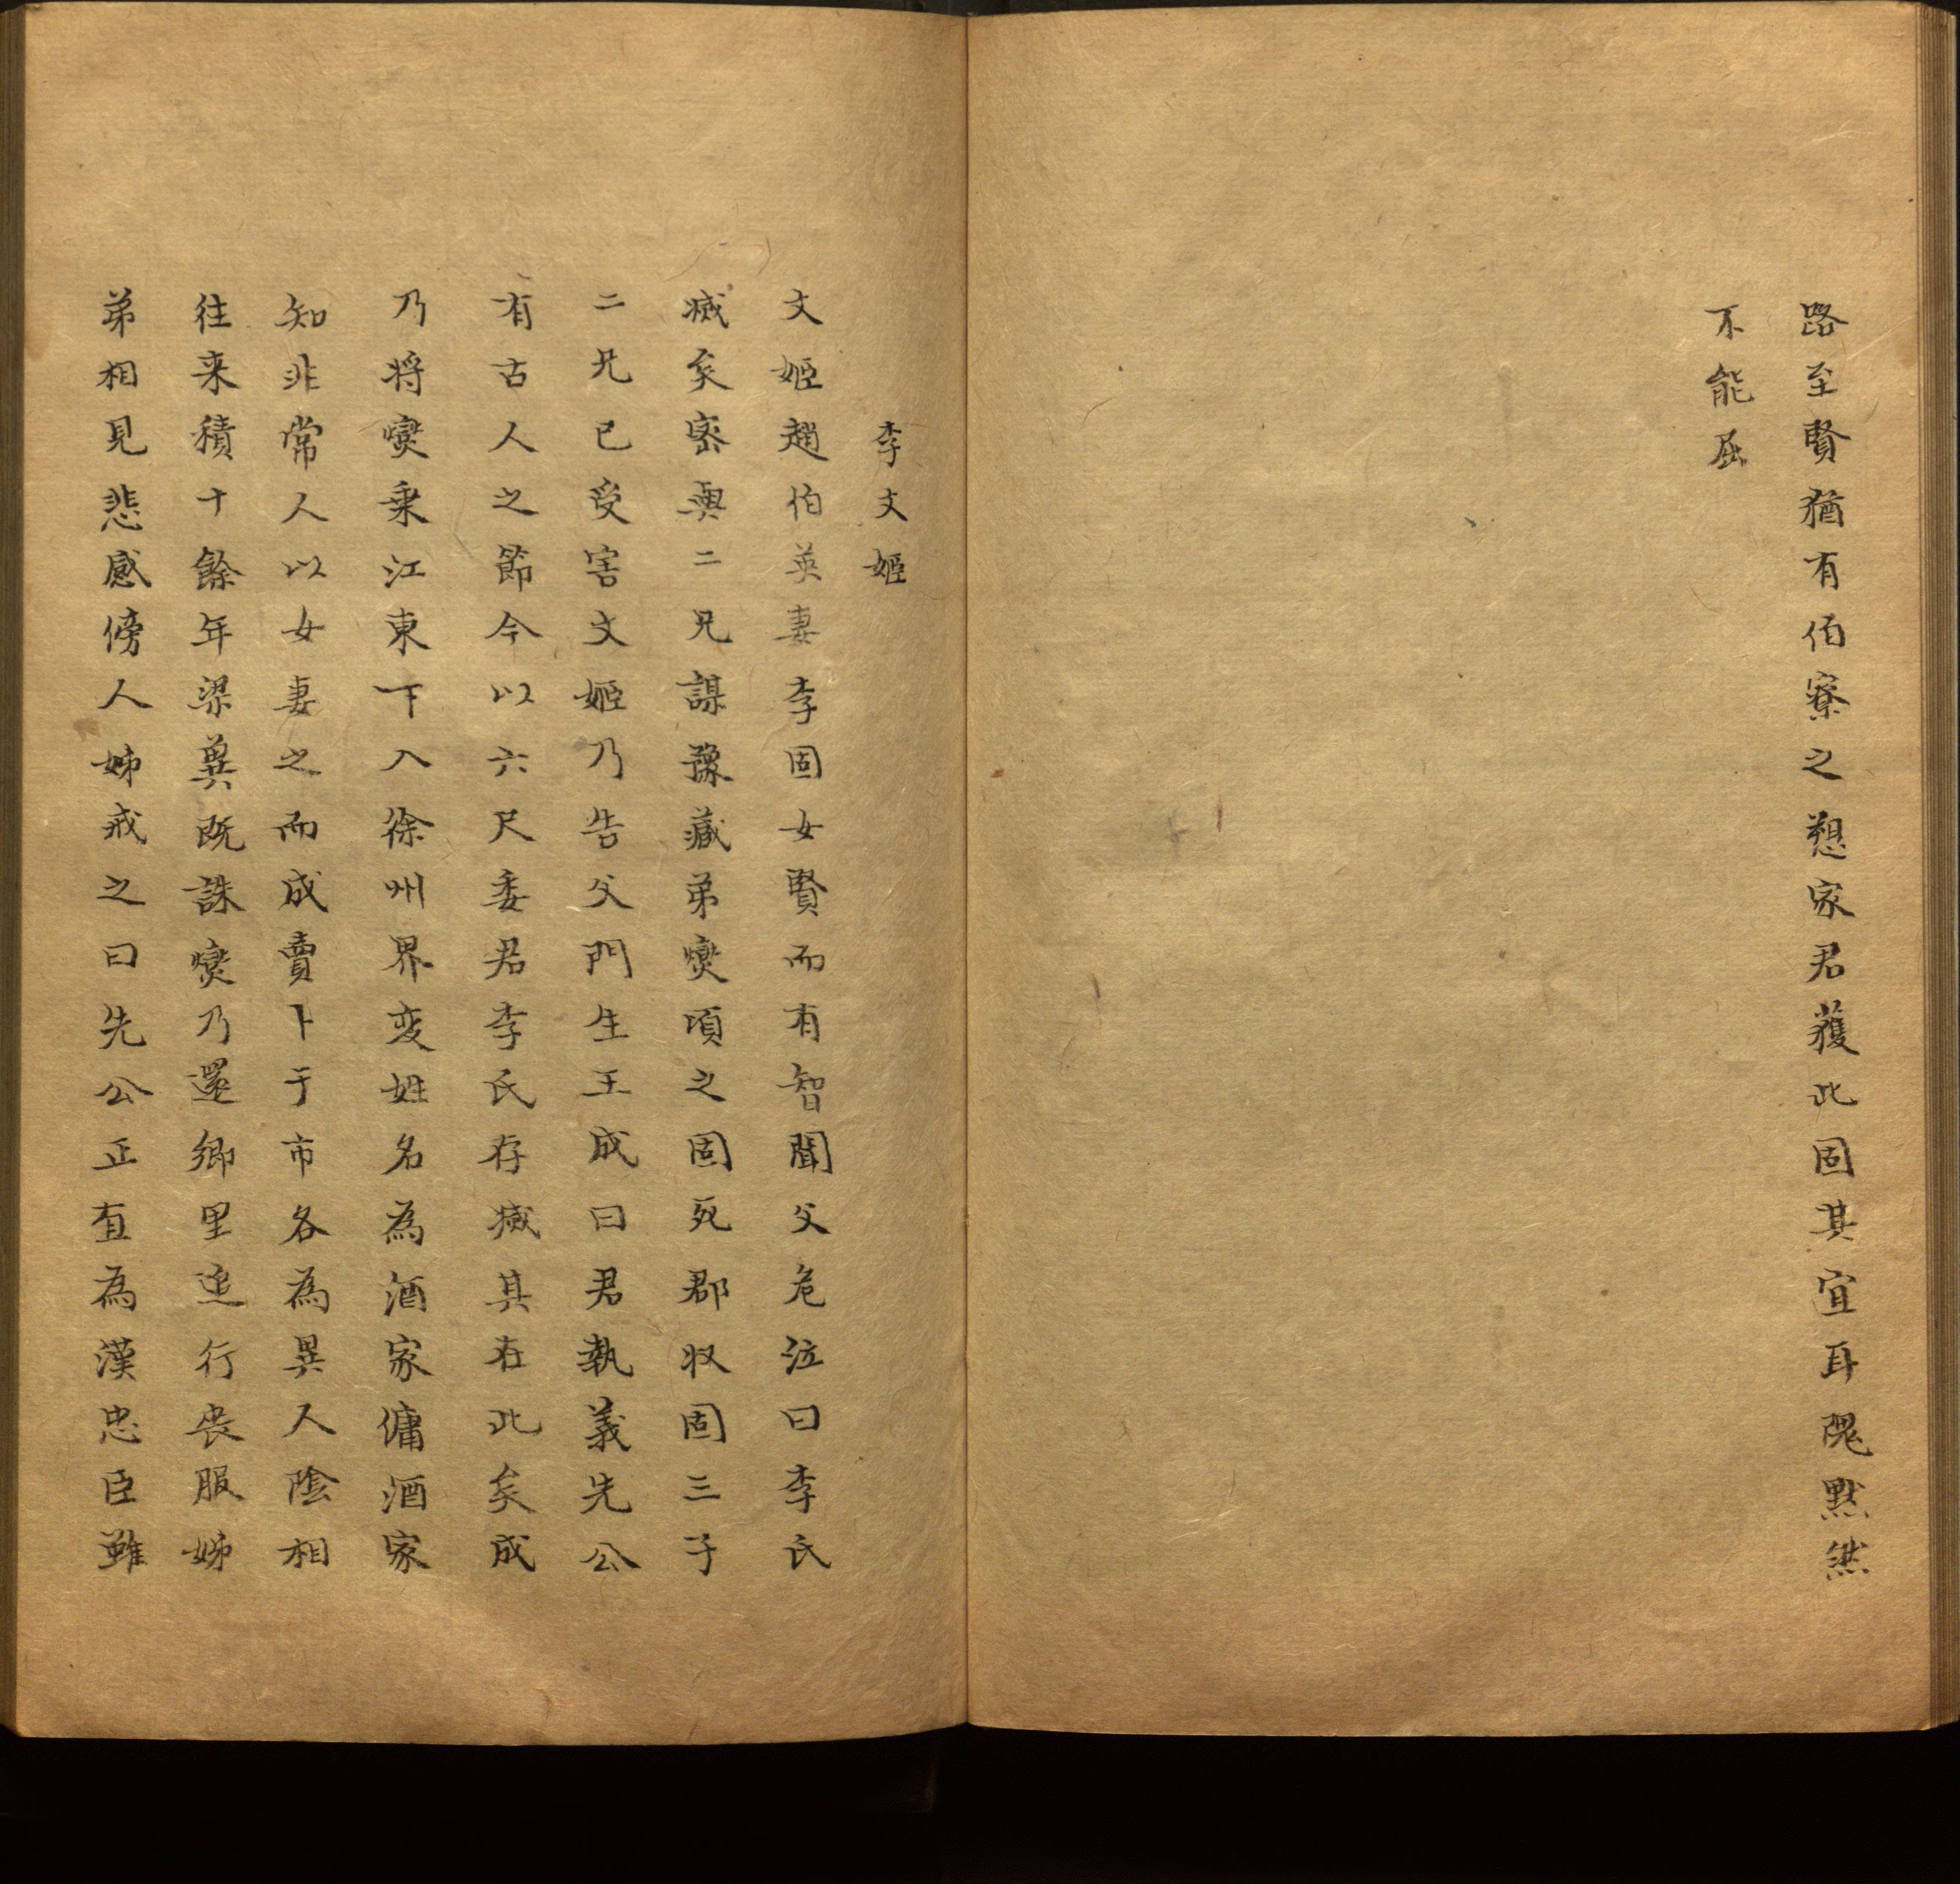 路至賢猶有伯寮之愬家君獲此固其宜耳隗默然
不能屈
李文姬
文姬趙伯英妻李固女賢而有智聞父危泣曰李氏
滅矣密與二兄謀豫藏弟爕頃之固死郡収固三子
二兄已受害文姬乃告父門生王成曰君執義先公
有古人之節今以六尺委君李氏存滅其在此矣成
乃将爕乗江東下入徐州界変姓名為酒家傭酒家
知非常人以女妻之而成賣卜于市各為異人陰相
往来積十餘年梁冀既誅爕乃還鄉里追行喪服姊
弟相見悲感傍人姊戒之曰先公正直為漢忠臣雖